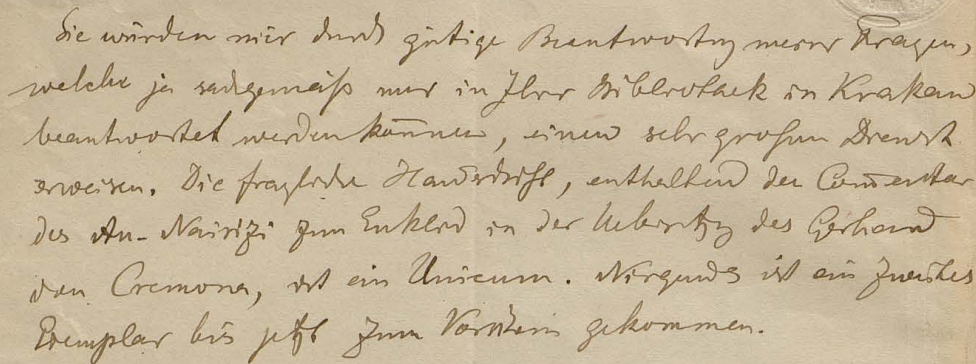 Sie würden mir durch gütige Beantwortung meiner Fragen,
welche ja sachgemäß nur in Ihrer Bibliothek in Krakau
beantwortet werden können, einen sehr großen Dienst
erweisen. Die fragliche Handschrift, enthaltend den Comentar
des An-Nairizi zum Euklid in der Uebersetzg des Gerhard
von Cremona, ist ein Unicum. Nirgends ist ein zweites
Exemplar bis jetzt zum Vorschein gekommen.